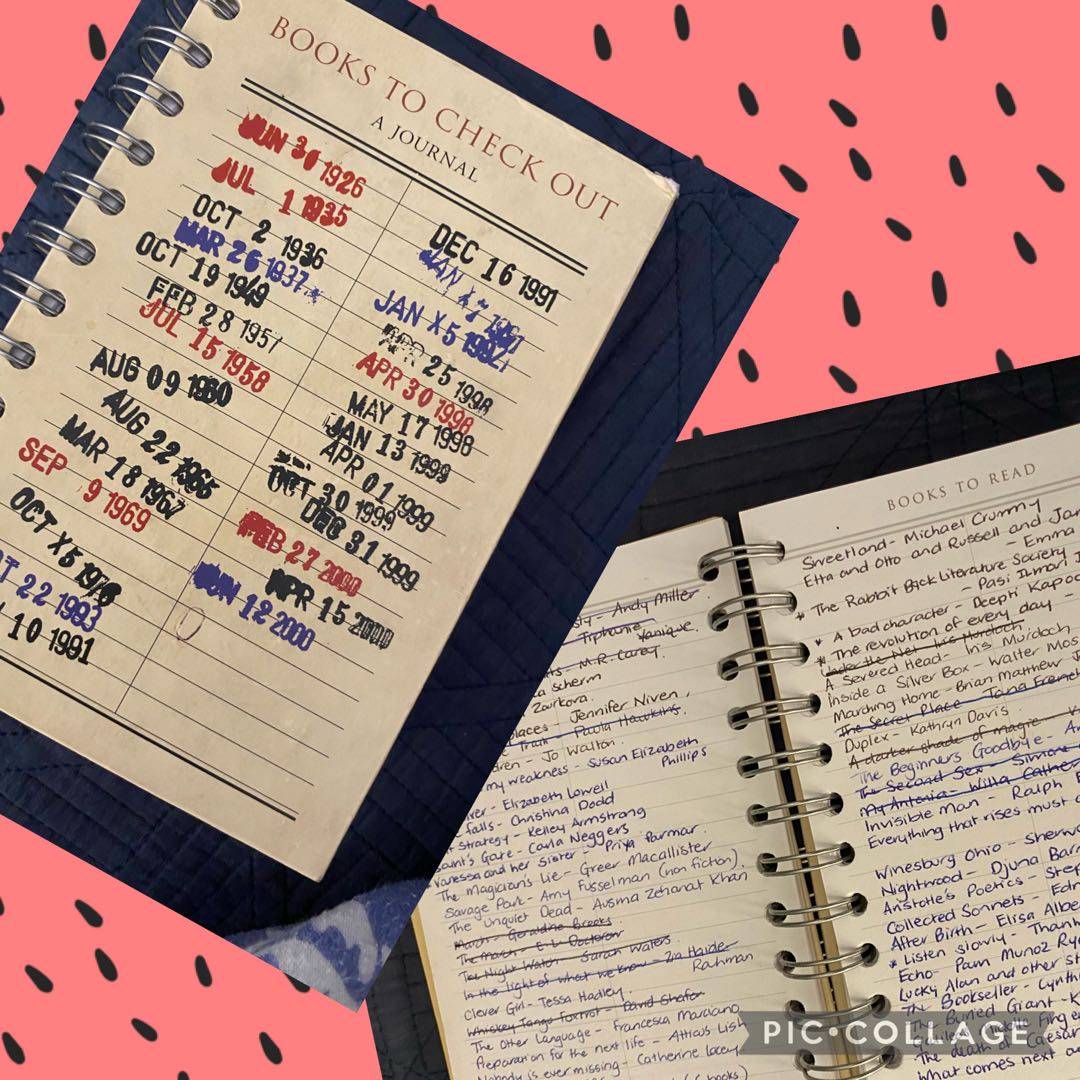 BOOKS TO CHECK OUT
A JOURNAL
JUN 30 1926
JUL 1 1935
OCT 2 1936
MAR 26 1937
OCT 19 1949
FEB 28 1957
JUL 15 1958
AUG 09 1960
AUG 22 1966
MAR 18 1967
SEP 9 1969
OCT X5 1976
22 1983
10 1991
DEC 16 1991
JAN
JAN X5 1992
25 1998
APR 30 1998
MAY 17 1998
JAN 13 1999
APR 01 1999
OCT 30 1999
DEC 31 1999
FEB 27 2000
APR 15 2000
JUN 12 2000
Andy Miller
Tiphanie Yanique
M.R. Carey
Scherm
Zourkova
places - Jennifer Niven
Train - Paula Hawkins
- Jo Walton
my weakness - Susan Elizabeth
Phillips
- Elizabeth Lowell
Falls - Christina Dodd
Strategy - Kelley Armstrong
Saint's Gate - Carla Neggers
Vanessa and her Sister - Priya Parmar
The Magician's Lie - Greer Macallister
Savage Park - Amy Fusselman (non fiction)
The Unquiet Dead - Ausma Zehanat Khan
March - Geraldine Brooks
The March - E L Doctorow
The Night Watch - Sarah Waters
In the light of what we know - Zia Haider
Rahman
Clever Girl - Tessa Hadley
Whiskey Tango Foxtrot - David Shafer
The Other Language - Francesca Marciano
Preparation for the next life - Atticus Lish
Nobody is ever missing - Catherine Lacey
books)
BOOKS TO READ
Sweetland - Michael Crummy
Etta and Otto and Russell and Jam
- Emma
* The Rabbit Back Literature Society
- Pasi Ilmari J
* A bad character - Deepti Kapoo
* The revolution of every day -
Under the Net - Iris Murdoch
A Severed Head - Iris Murdoch
Inside a Silver Box - Walter Mos
Marching Home - Brian Matthew J
The Secret Place - Tana French
Duplex - Kathryn Davis
A darker shade of magic - V
The Beginners Goodbye - A
The Second Sex - Simone
My Antonia - Willa Cather
Invisible Man - Ralph
Everything that rises must
Winesburg Ohio - Sherwo
Nightwood - Djuna Bar
Aristotle's Poetics - Step
Collected Sonnets - Edn
After Birth - Elisa Albe
* Listen slowly - Thanh
Echo - Pam Munoz Ry
Lucky Alan and other St
The Bookseller - Cynth
The Buried Giant - K
Middle Finge
The death of Caesar
What comes next an
PIC•COLLAGE